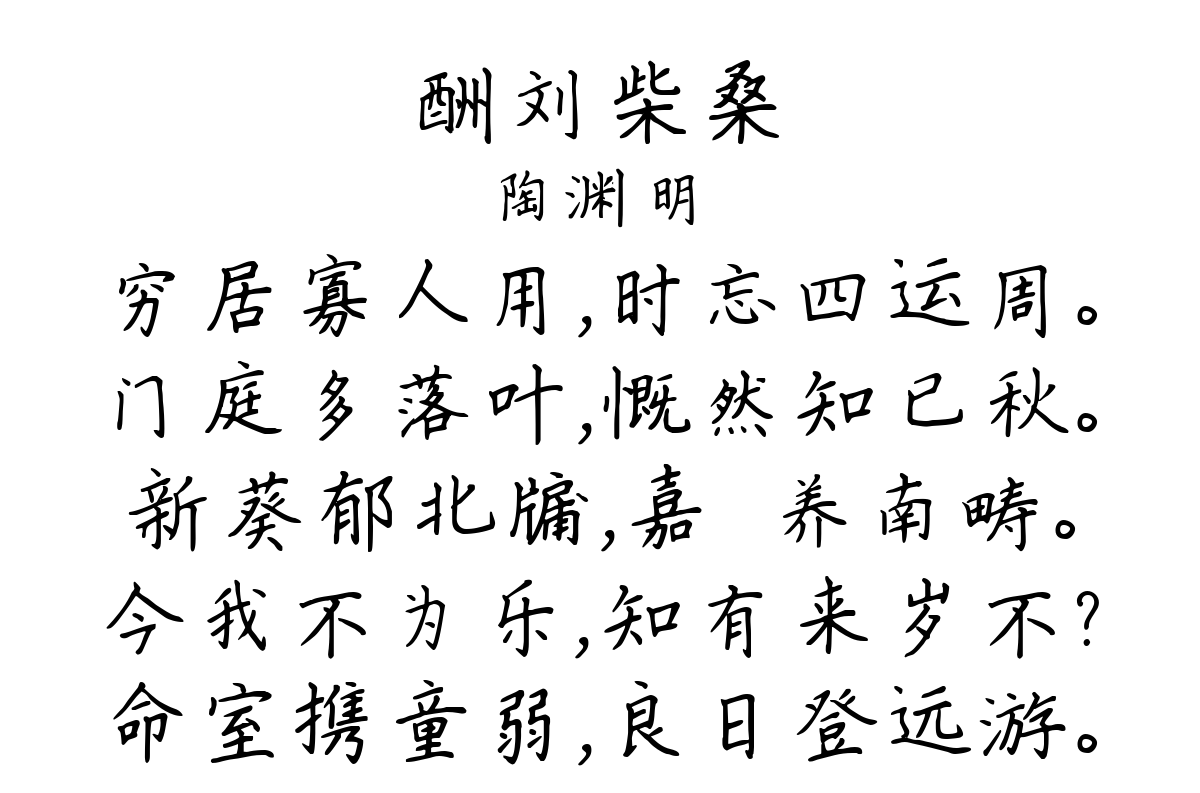 酬刘柴桑
陶渊明
穷居寡人用,时忘四运周。
门庭多落叶,慨然知已秋。
新葵郁北牖,嘉 养南畴。
今我不为乐,知有来岁不?
命室携童弱,良日登远游。